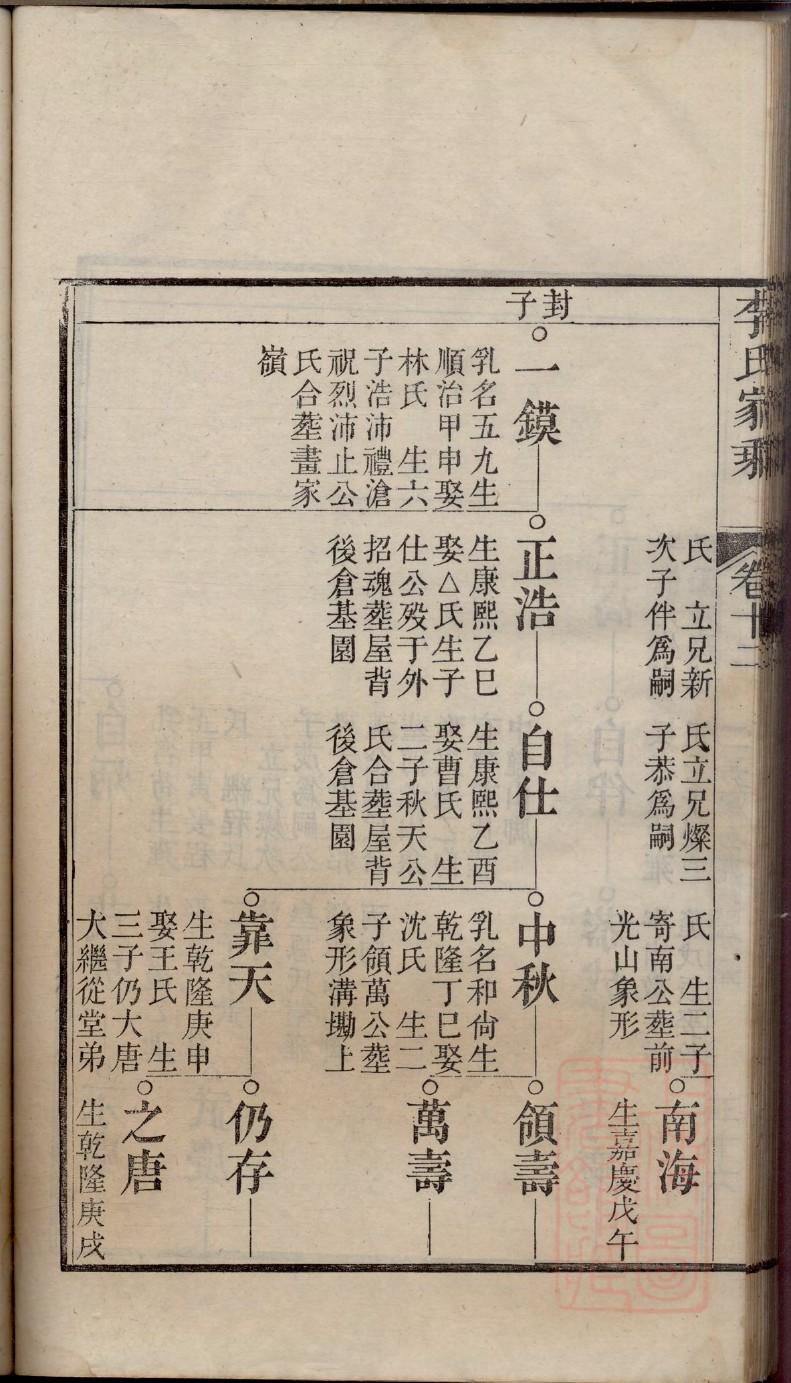 李氏家乘
卷十二
氏　立兄新
次子伴爲嗣
氏立兄燦三
子恭爲嗣
氏　生二子
寄南公塟前
光山象形
南海
生嘉慶戊午
封子
一鏌
乳名五九生
順治甲申娶
林氏　生六
子浩沛禮滄
祝烈沛止公
氏合塟畫家
嶺
正浩
生康熙乙巳
娶△氏生子
仕公殁于外
招魂塟屋背
後倉基園
自仕
生康熙乙酉
娶曹氏　生
二子秋天公
氏合塟屋背
後倉基園
中秋
乳名和尙生
乾隆丁巳娶
沈氏　生二
子領萬公塟
象形溝㘭上
領壽
萬壽
靠天
生乾隆庚申
娶王氏　生
三子仍大唐
大繼從堂弟
仍存
之唐
生乾隆庚戌